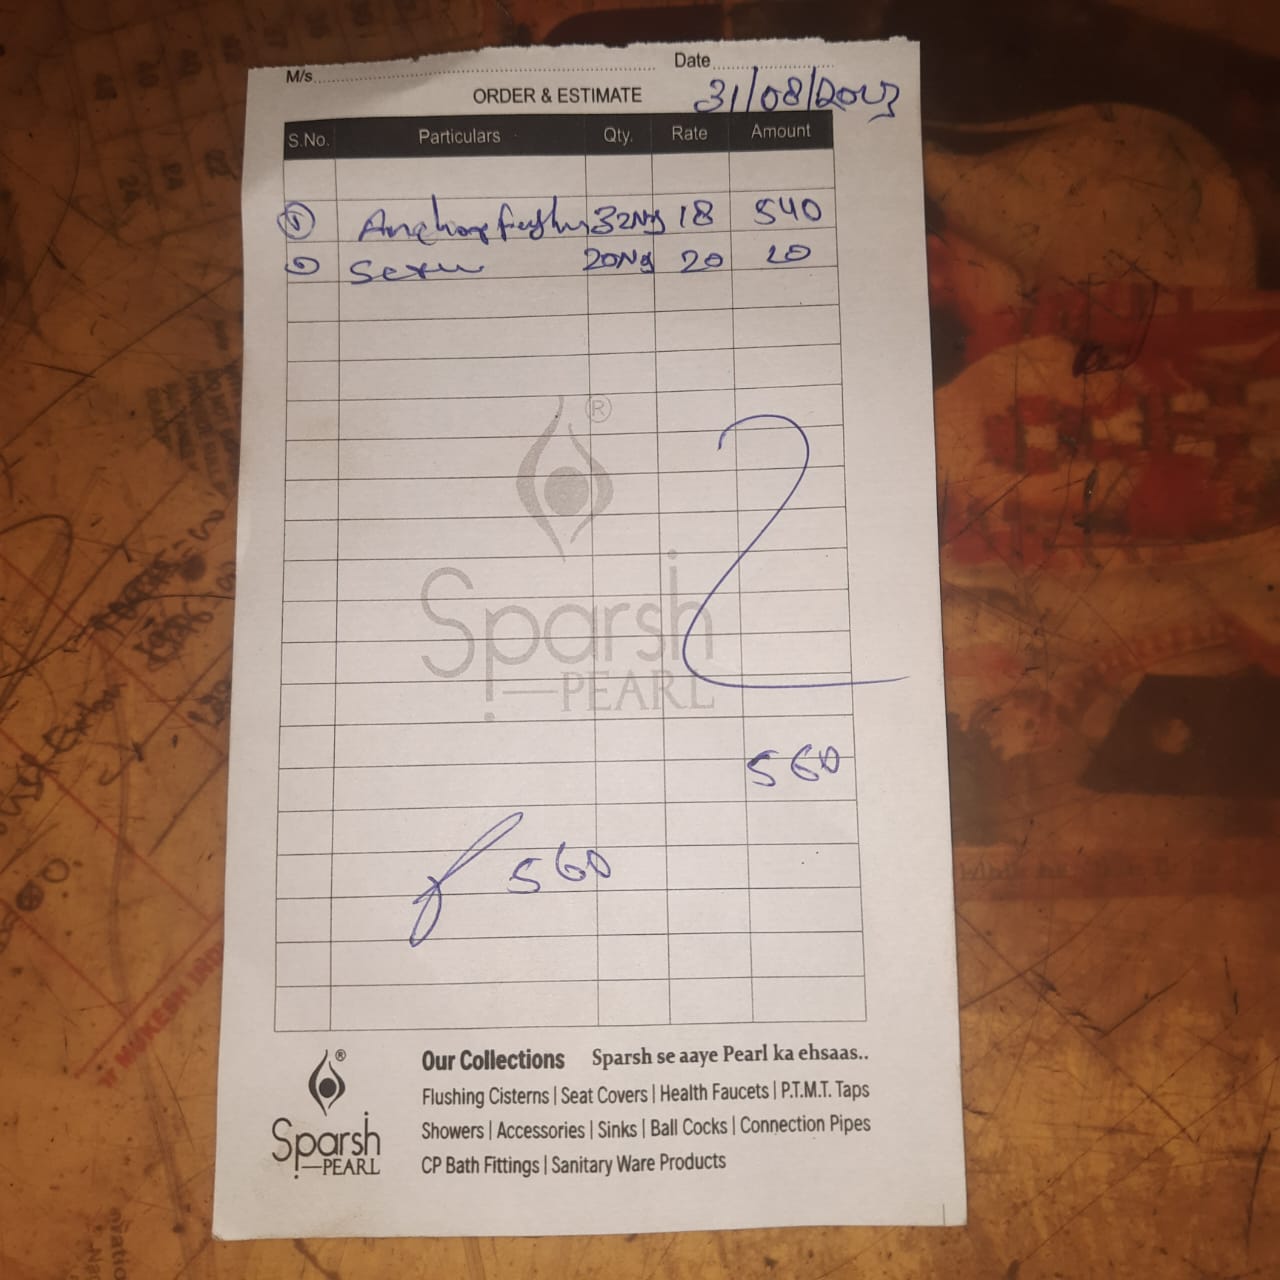 M/s
Date
31/08/2023
ORDER & ESTIMATE
S.No. Particulars Qty. Rate Amount
Anchor 32Ng 18 540
20Ng 20 20
®
Sparsh
PEARL
560
560
®
Sparsh
PEARL
Our Collections Sparsh se aaye Pearl ka ehsaas..
Flushing Cisterns | Seat Covers | Health Faucets | P.T.M.T. Taps
Showers | Accessories | Sinks | Ball Cocks | Connection Pipes
CP Bath Fittings | Sanitary Ware Products